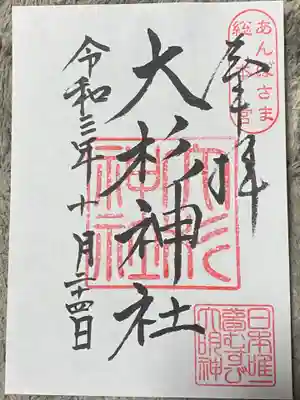 あんばさま
総本宮
奉拝
大杉神社
大杉神社
令和三年十月二十四日
日本唯一
夢むすび
大明神